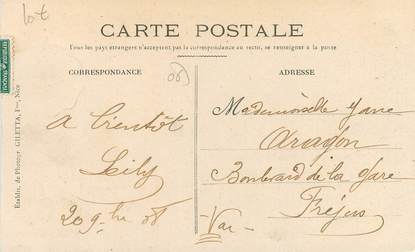 lot
CARTE POSTALE
Tous les pays étrangers n'acceptent pas la correspondance au recto, se renseigner à la poste
CORRESPONDANCE
08
ADRESSE
A bientôt
Lily
20 9bre 08
Mademoiselle Jane
Aragon
Boulevard de la Gare
Fréjus
Var
Etablis. de Photogr. GILETTA, Fres, Nice